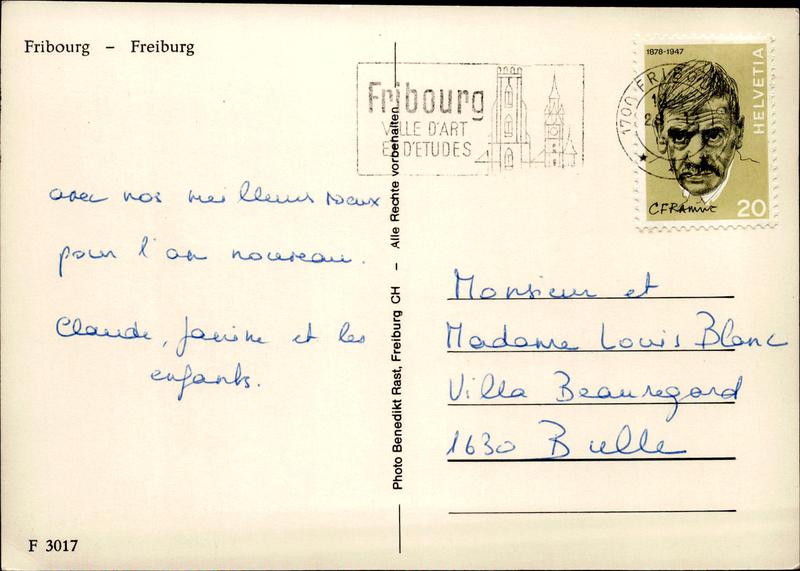 Fribourg – Freiburg
Fribourg
VILLE D'ART
ET D'ETUDES
1700 FRIBOURG
1878-1947
HELVETIA
C F RAMUZ
20
avec nos meilleurs voeux
pour l'an nouveau.
Claude, Janine et les
enfants.
Photo Benedikt Rast, Freiburg CH – Alle Rechte vorbehalten
Monsieur et
Madame Louis Blanc
Villa Beauregard
1630 Bulle
F 3017